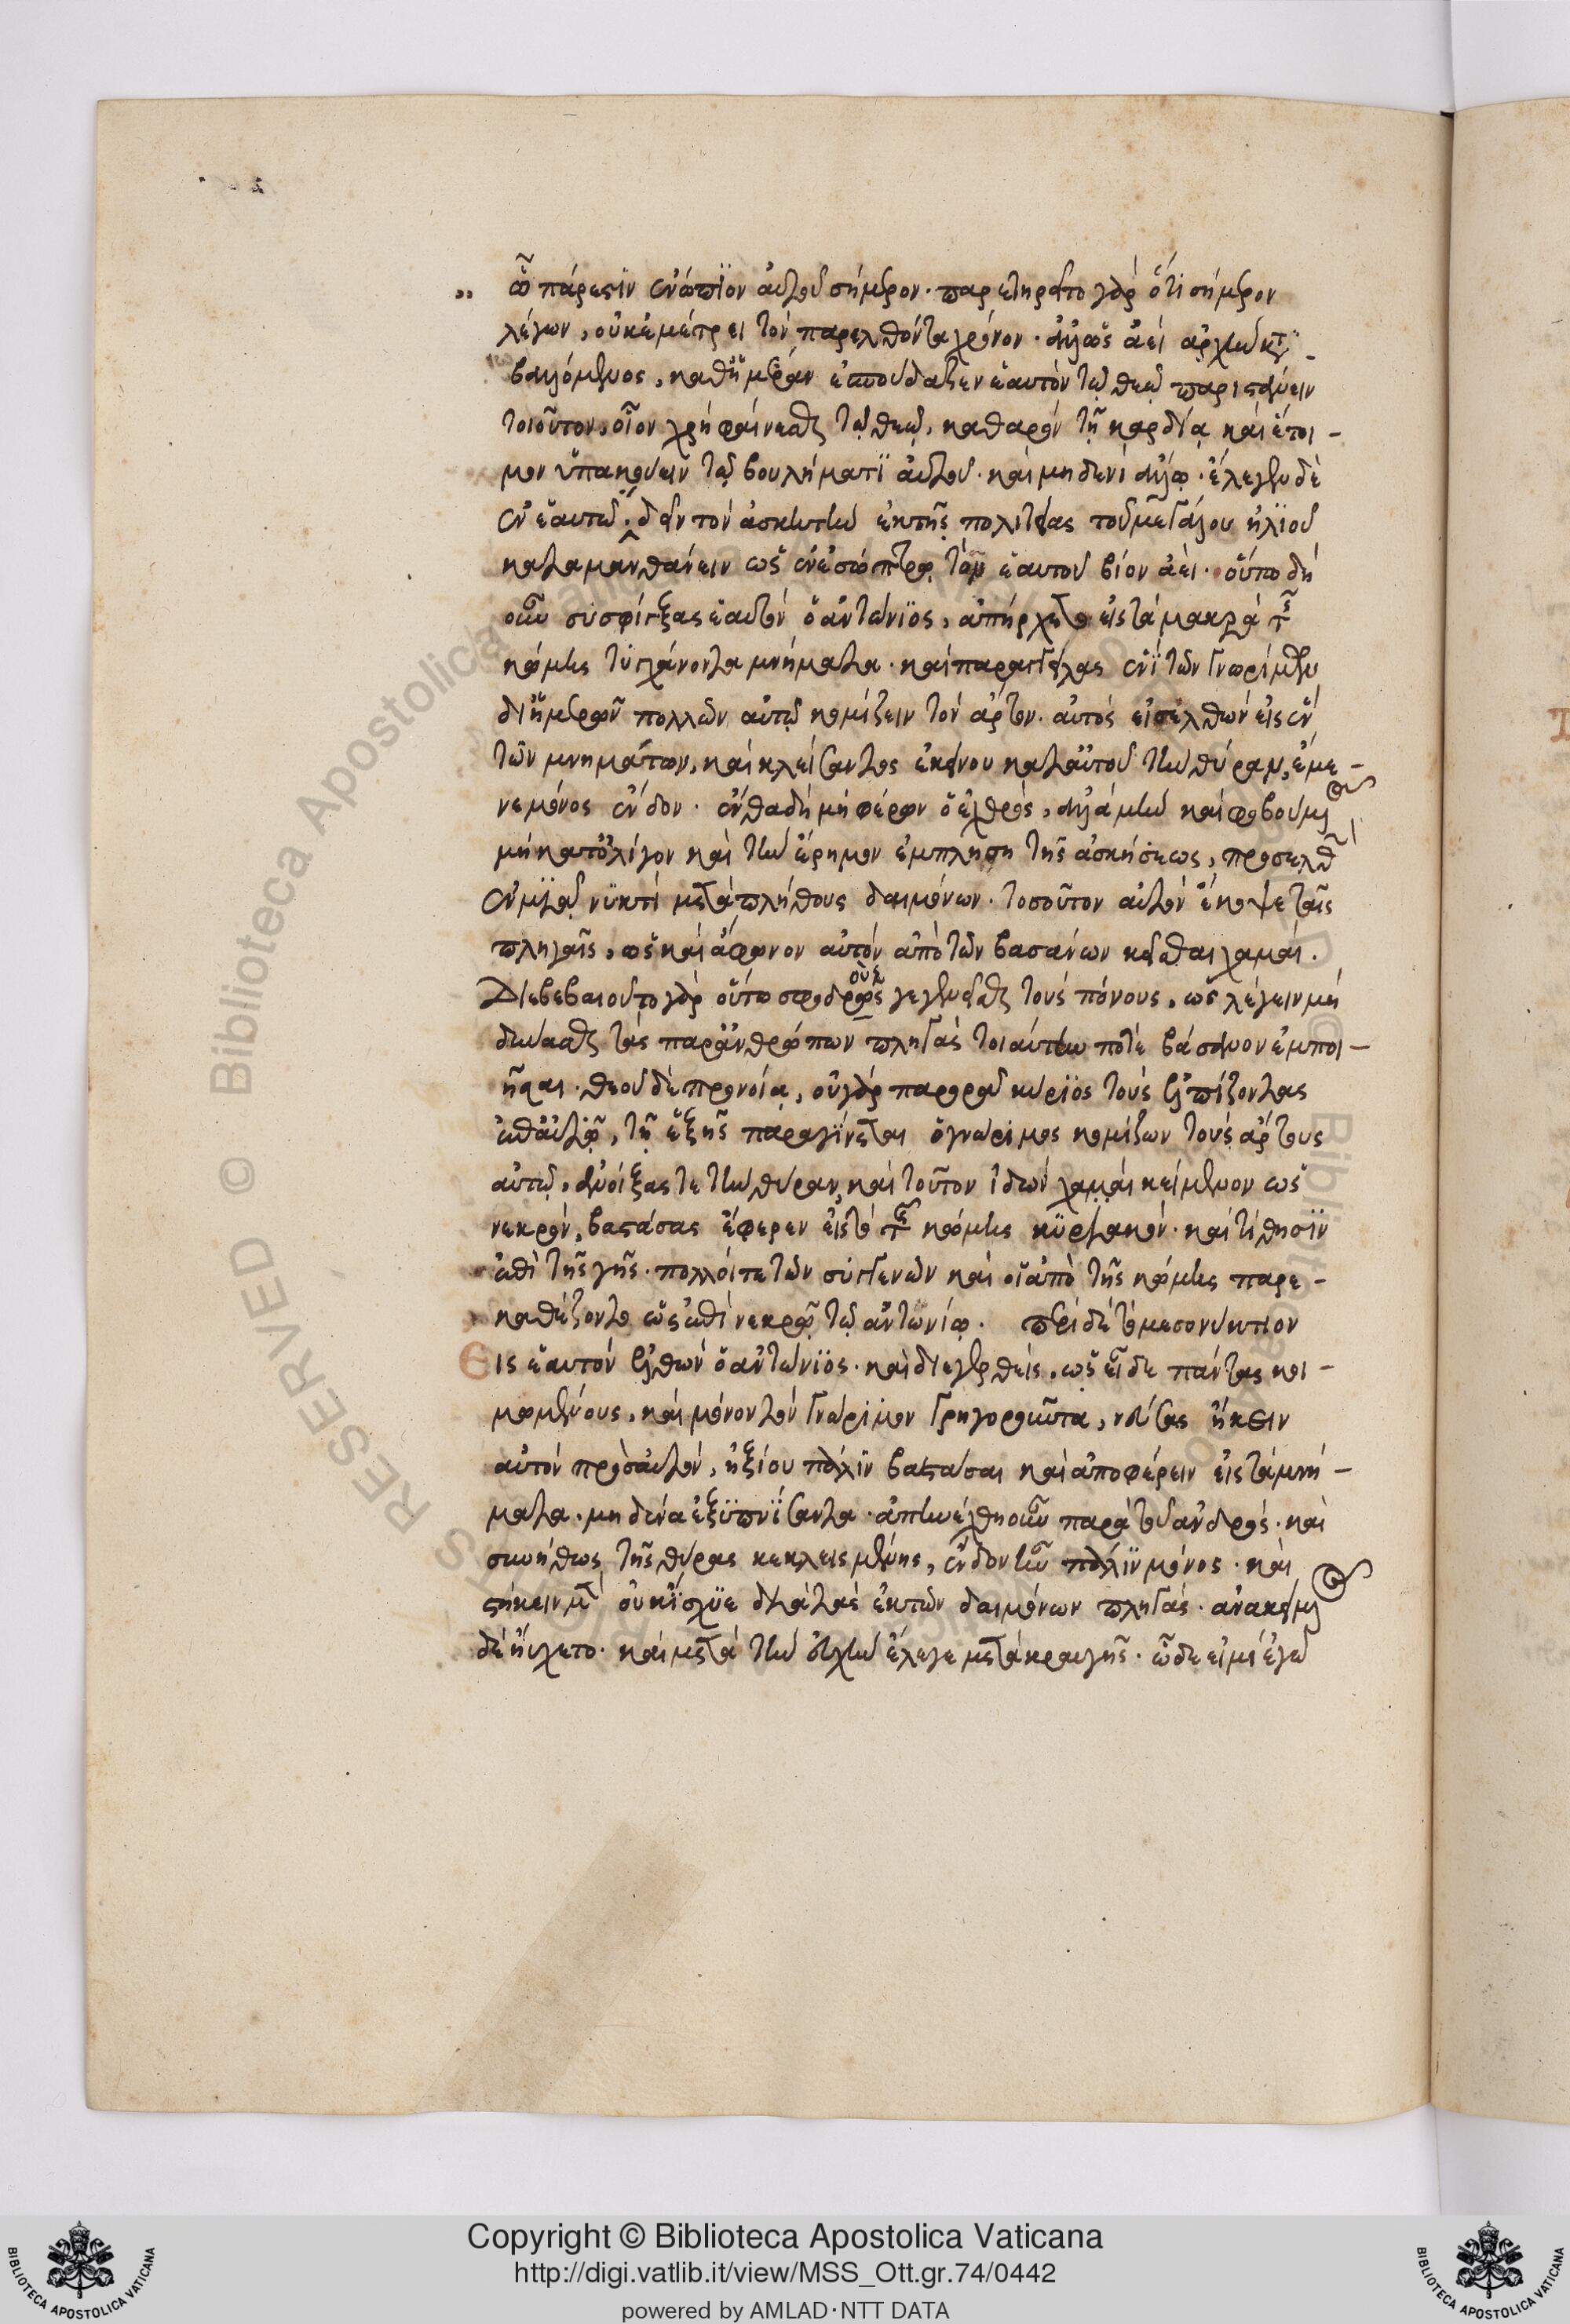 ᾧ πάρεστιν ἐνώπϊον αὐτοῦ σήμερον· παρετηρεῖτο γὰρ ὅτι σήμερον
λέγων, οὐκ ἐμέτρει τὸν παρελθόντα χρόνον· ἀλλ' ὡς ἀεὶ ἀρχὴν
βαλόμενος, καθ' ἡμέραν ἐσπούδαζεν ἑαυτὸν τῷ θεῷ παριστάνειν
τοιοῦτον, οἷον χρὴ φαίνεσθαι τῷ θεῷ, καθαρὸν τῇ καρδίᾳ καὶ ἕτοι-
μον ὑπακούειν τῷ βουλήματϊ αὐτοῦ· καὶ μηδενὶ ἄλλῳ· ἔλεγεν δὲ
ἐν ἑαυτῷ· δεῖν τὸν ἀσκητὴν ἐκ τῆς πολιτείας τοῦ μεγάλου ἠλϊοῦ
καταμανθάνειν ὡς ἐν ἐσόπτρῳ τὸν ἑαυτοῦ βίον ἀεί· οὕτω δὴ
οὖν συσφίγξας ἑαυτὸν ὁ ἀντώνϊος, ἀπήρχετο εἰς τὰ μακρὰ τῆς
κώμης τυγχάνοντα μνήματα· καὶ παραγγείλας ἑνῒ τῶν γνωρίμων
δι' ἡμερῶν πολλῶν αὐτῷ κομίζειν τὸν ἄρτον· αὐτὸς εἰσελθὼν εἰς ἓν
τῶν μνημάτων, καὶ κλείσαντος ἐκείνου κατ' αὐτοῦ τὴν θύραν, ἔμε-
νε μόνος ἔνδον· ἔνθα δὴ μὴ φέρων ὁ ἐχθρός, ἀλλὰ μὴν καὶ φοβούμενος
μὴ κατ' ὀλίγον καὶ τὴν ἔρημον ἐμπλήσῃ τῆς ἀσκήσεως, προσελθὼν
ἐν μϊᾷ νϋκτὶ μετὰ πλήθους δαιμόνων· τοσοῦτον αὐτὸν ἔκοψε ταῖς
πληγαῖς, ὡς καὶ ἄφωνον αὐτὸν ἀπὸ τῶν βασάνων κεῖσθαι χαμαί.
Διεβεβαιοῦτο γὰρ οὕτω σφοδροὺς γεγενεῖσθαι τοὺς πόνους, ὡς λέγειν μὴ
δύνασθαι τὰς παρ' ἀνθρώπων πληγὰς τοιαύτην ποτὲ βάσανον ἐμποι-
ῆσαι· θεοῦ δὲ προνοίᾳ, οὐ γὰρ παρορᾷ κύριος τοὺς ἐλπίζοντας
ἐπ' αὐτῷ, τῇ ἑξῆς παραγίνεται ὁ γνώριμος κομίζων τοὺς ἄρτους
αὐτῷ, ἀνοίξας τε τὴν θύραν, καὶ τοῦτον ἰδὼν χαμαὶ κείμενον ὡς
νεκρόν, βαστάσας ἔφερεν εἰς τὸ τῆς κώμης κϋρϊακόν· καὶ τίθησϊν
ἐπὶ τῆς γῆς· πολλοί τε τῶν συγγενῶν καὶ οἱ ἀπὸ τῆς κώμης παρε-
καθέζοντο ὡς ἐπὶ νεκρῷ τῷ ἀντωνίῳ. περὶ δὲ τὸ μεσονύκτιον
Εἰς ἑαυτὸν ἐλθὼν ὁ ἀντώνϊος· καὶ διεγερθείς, ὡς εἶδε πάντας κοι-
μωμένους, καὶ μόνον τὸν γνώριμον γρηγοροῦντα, νεύσας ἥκειν
αὐτὸν πρὸς αὐτόν, ἠξίου πάλϊν βαστάσαι καὶ ἀποφέρειν εἰς τὰ μνή-
ματα· μηδένα ἐξϋπνΐσαντα· ἀπηνέχθη οὖν παρὰ τοῦ ἀνδρός· καὶ
συνήθως τῆς θύρας κεκλεισμένης, ἔνδον ἦν πάλϊν μόνος· καὶ
στήκειν μὲν οὐκ ἴσχϋε διὰ τὰς ἐκ τῶν δαιμόνων πληγάς· ἀνακείμενος
δὲ ηὔχετο· καὶ μετὰ τὴν εὐχὴν ἔλεγε μετὰ κραυγῆς· ὧδε εἰμὶ ἐγὼ
Copyright © Biblioteca Apostolica Vaticana
http://digi.vatlib.it/view/MSS_Ott.gr.74/0442
powered by AMLAD·NTT DATA